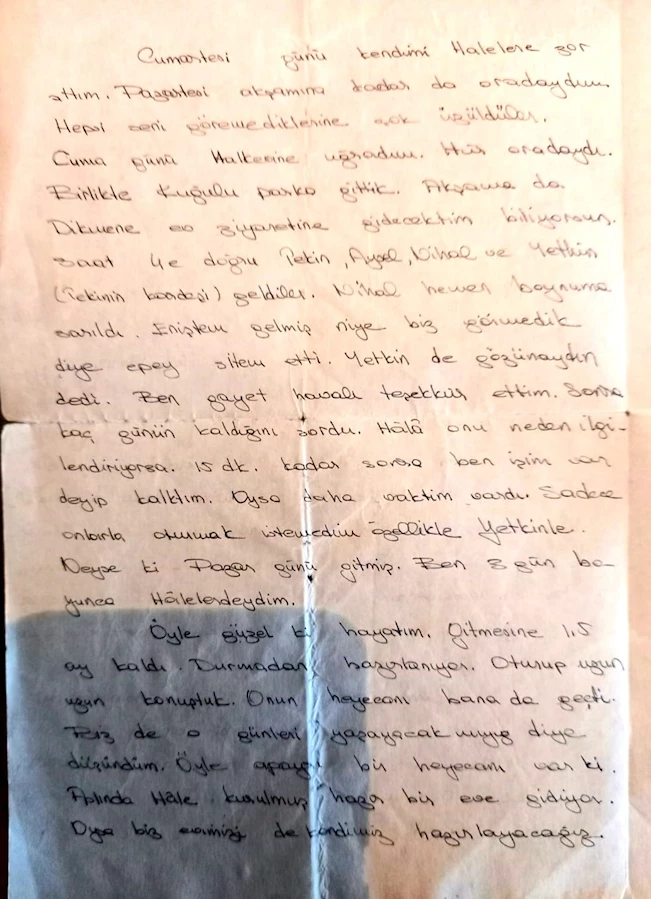 Cumartesi günü kendimi Halelere zor
attım. Pazartesi akşamına kadar da oradaydım.
Hepsi seni göremediklerine çok üzüldüler.
Cuma günü Halkevine uğradım. Hür oradaydı.
Birlikte Kuğulu parka gittik. Akşama da
Dikmene ev ziyaretine gidecektim biliyorsun.
Saat 4e doğru Tekin, Aysel, Nihal ve Yetkin
(Tekinin kardeşi) geldiler. Nihal hemen boynuma
sarıldı. Eniştem gelmiş niye biz görmedik
diye epey sitem etti. Yetkin de gözünaydın
dedi. Ben gayet havalı teşekkür ettim. Sonra
kaç günün kaldığını sordu. Hâlâ onu neden ilgi-
lendiriyorsa. 15 dk. kadar sonra ben işim var
deyip kalktım. Oysa daha vaktim vardı. Sadece
onlarla oturmak istemedim özellikle Yetkinle.
Neyse ki Pazar günü gitmiş. Ben 3 gün bo-
yunca Hâlelerdeydim.
Öyle güzel ki hayatım. Gitmesine 1,5
ay kaldı. Durmadan hazırlanıyor. Oturup uzun
uzun konuştuk. Onun heyecanı bana da geçti.
Biz de o günleri yaşayacak mıyız diye
düşündüm. Öyle apayrı bir heyecanı var ki.
Aslında Hâle kurulmuş hazır bir eve gidiyor.
Oysa biz evimizi de kendimiz hazırlayacağız.